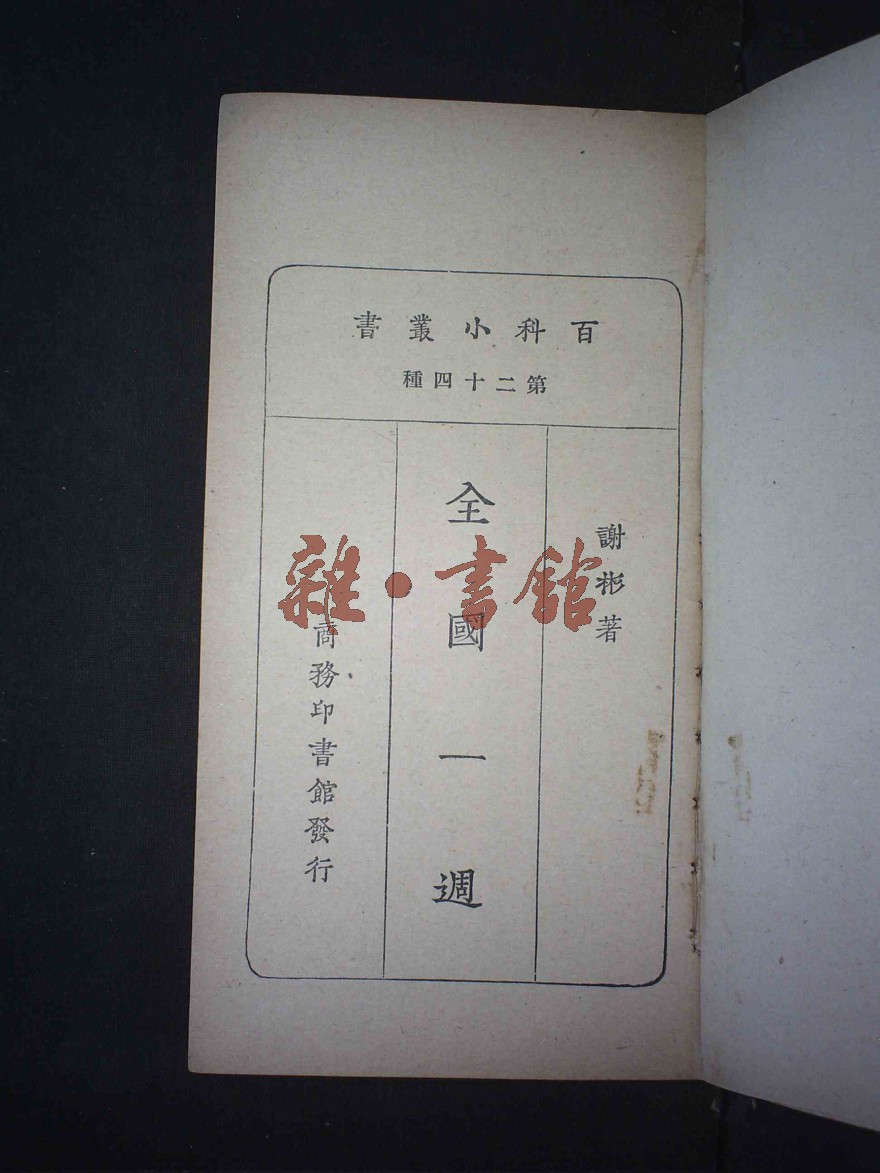 百科小叢書
第二十四種
謝彬著
全國一週
商務印書館發行
雜·書館